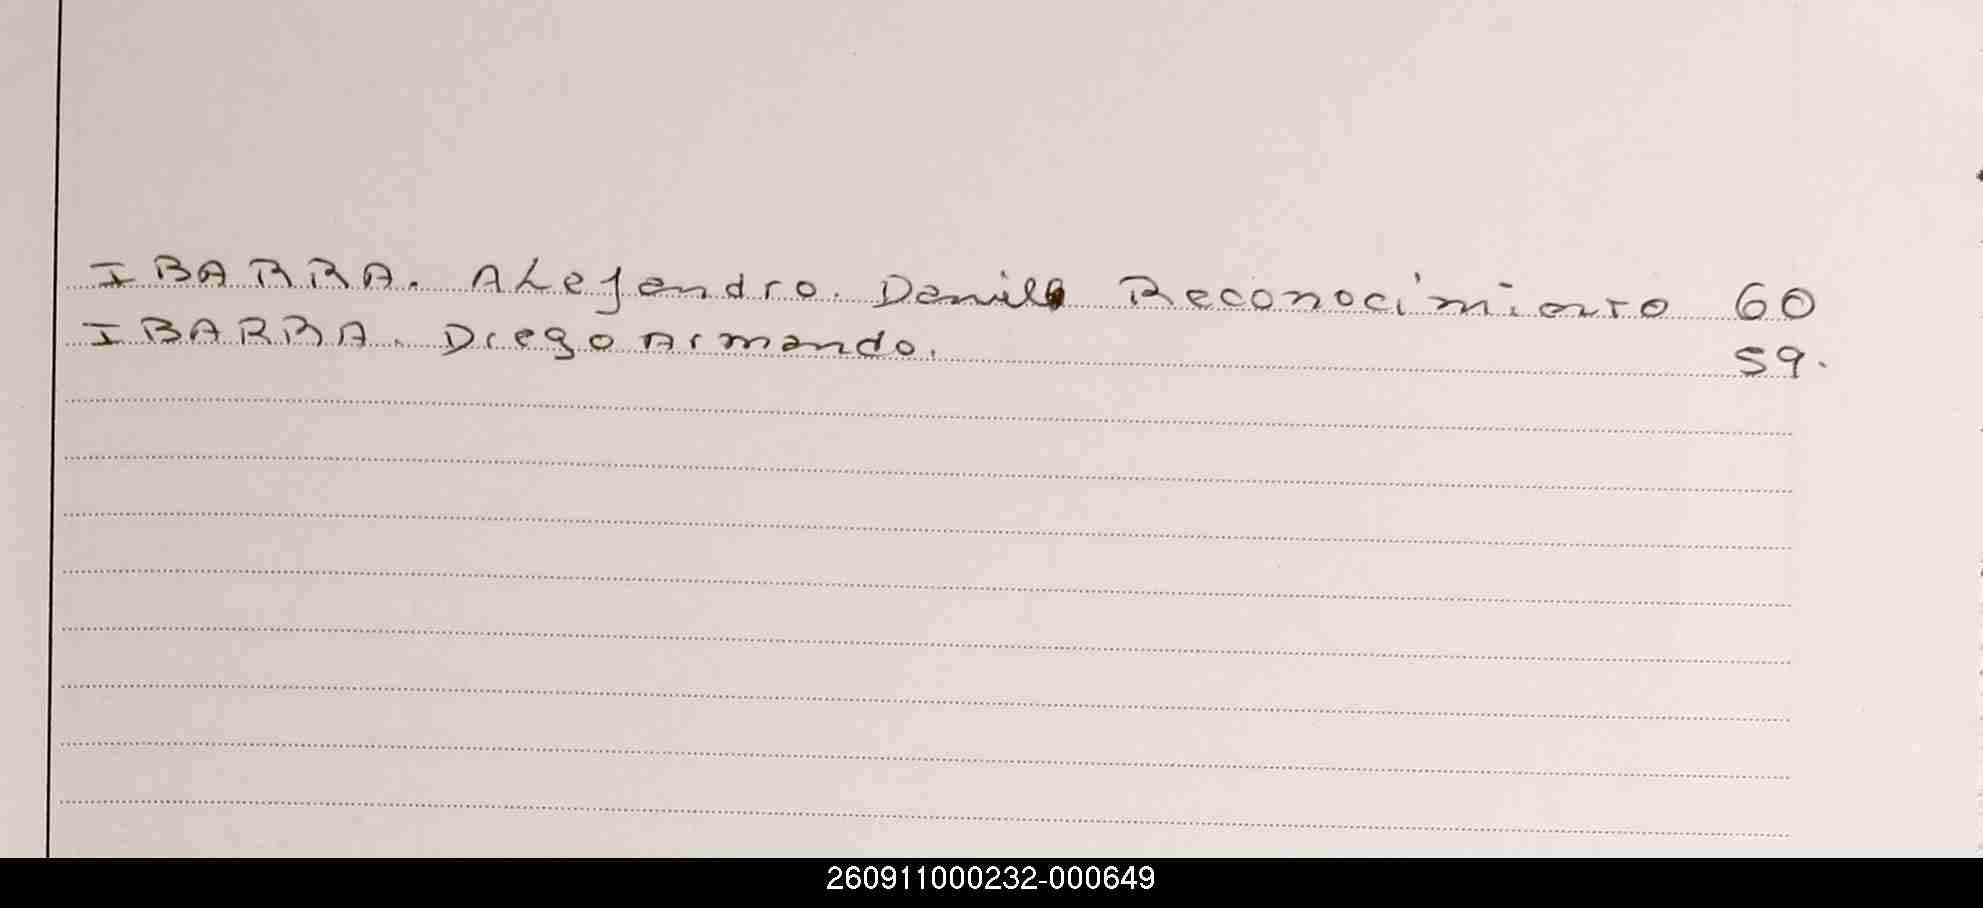 IBARRA. ALejandro. Danilo Reconocimiento 60
IBARRA. Diego Armando. 59.
260911000232-000649